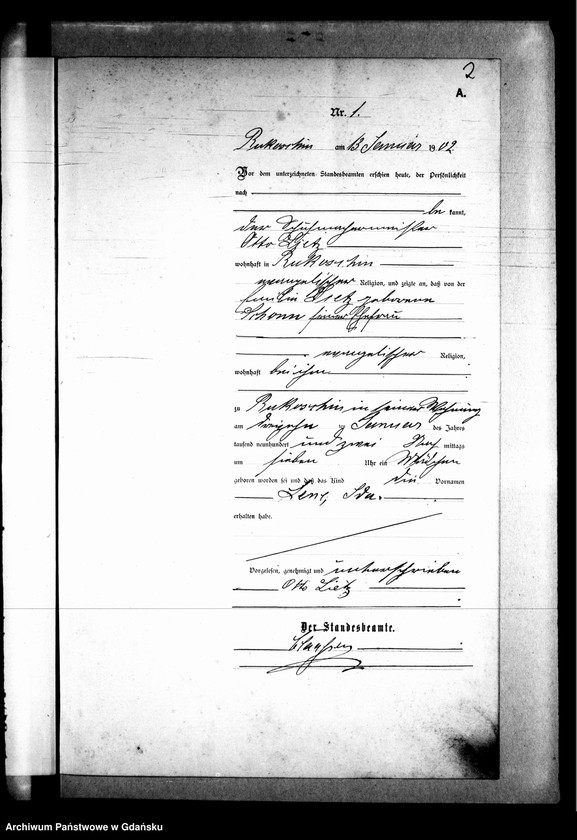 2
A.
Nr. 1.
Rukoschin am 13 Januar 1902
Vor dem unterzeichneten Standesbeamten erschien heute, der Persönlichkeit
nach
be kannt,
der Schuhmachermeister
Otto Lietz
wohnhaft in Rukoschin
evangelischer Religion, und zeigte an, daß von der
Lietz geborene
Schonn seiner Ehefrau
evangelischer Religion,
wohnhaft bei ihm
zu Rukoschin in seiner Wohnung
am Januar des Jahres
tausend neunhundert und zwei Nach mittags
um sieben Uhr ein Mädchen
geboren worden sei und daß das Kind die Vornamen
Lene, Ida.
erhalten habe.
Vorgelesen, genehmigt und unterschrieben
Otto Lietz
Der Standesbeamte.
Claassen
Archiwum Państwowe w Gdańsku